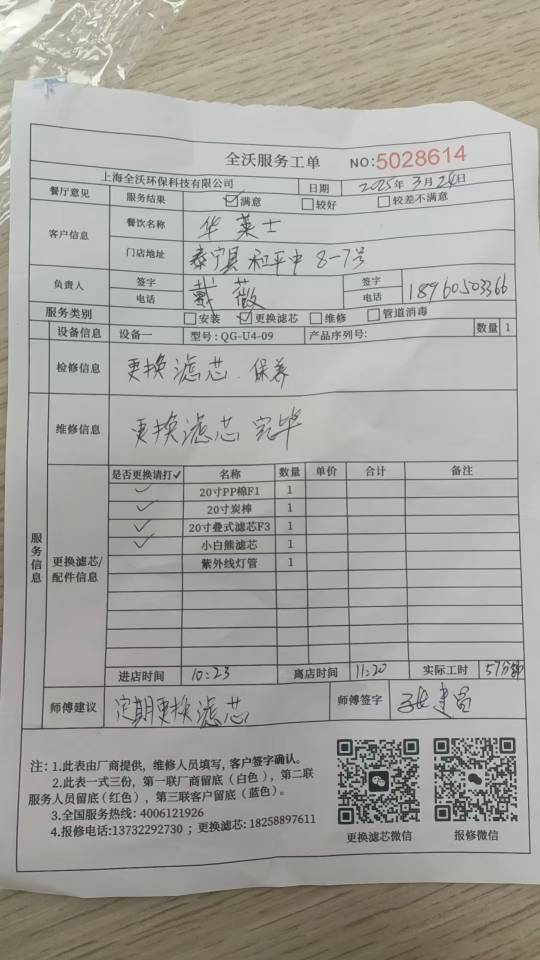 全沃服务工单 NO:5028614
上海全沃环保科技有限公司 日期 2025年3月24日
餐厅意见 服务结果 ☑满意 □较好 □较差不满意
客户信息 餐饮名称 华莱士
门店地址 泰宁县和平中8-7号
负责人 签字 戴薇 签字
电话 电话 18960503366
服务类别 □安装 ☑更换滤芯 □维修 □管道消毒
设备信息 设备一 型号:QG-U4-09 产品序列号: 数量 1
检修信息 更换滤芯.保养
维修信息 更换滤芯完毕
服务信息
更换滤芯/配件信息
是否更换请打✓ 名称 数量 单价 合计 备注
✓ 20寸PP棉F1 1
✓ 20寸炭棒 1
✓ 20寸叠式滤芯F3 1
✓ 小白熊滤芯 1
紫外线灯管 1
进店时间 10:23 离店时间 11:20 实际工时 57分钟
师傅建议 定期更换滤芯 师傅签字
注:1.此表由厂商提供,维修人员填写,客户签字确认。
2.此表一式三份,第一联厂商留底(白色),第二联
服务人员留底(红色),第三联客户留底(蓝色)。
3.全国服务热线: 4006121926
4.报修电话:13732292730 ; 更换滤芯: 18258897611
更换滤芯微信 报修微信